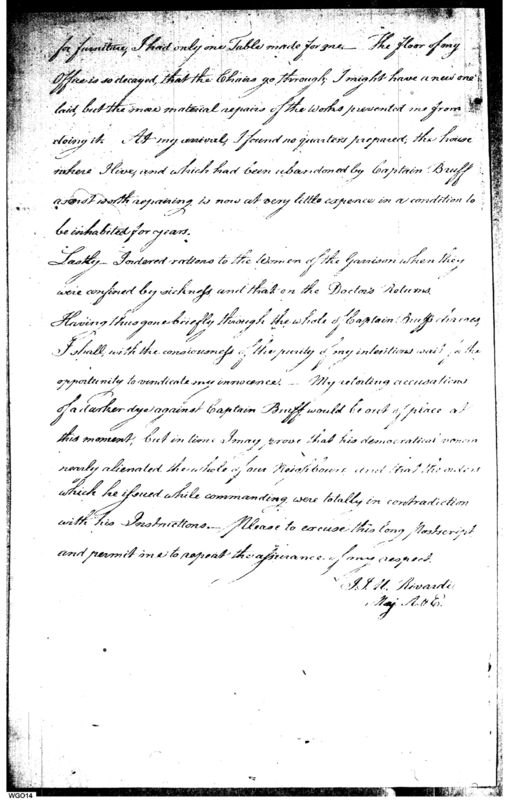 for furniture, I had only one Table made for me — The floor of my
Office is so decayed, that the Chairs go through, I might have a new one
laid, but the more material repairs of the Works prevented me from
doing it. At my arrival, I found no quarters prepared, the house
where I live, and which had been abandoned by Captain Bruff
as not worth repairing is now at very little expence in a condition to
be inhabited for years.
Lastly — I ordered rations to the Women of the Garrison when they
were confined by sickness and that on the Doctor's Returns.
Having thus gone briefly through the whole of Captain Bruff's charges,
I shall, with the consciousness of the purity of my intentions wait for the
opportunity to vindicate my innocence. — My retorting accusations
of a darker dye against Captain Bruff would be out of place at
this moment, but in time I may prove that his democratical
nearly alienated the whole of our Neighbours and that the orders
which he issued while commanding were totally in contradiction
with his Instructions. — Please to excuse this long Postscript
and permit me to repeat the assurance of my respect.
J. J. U. Rivardi
Maj A & E.
WGO14